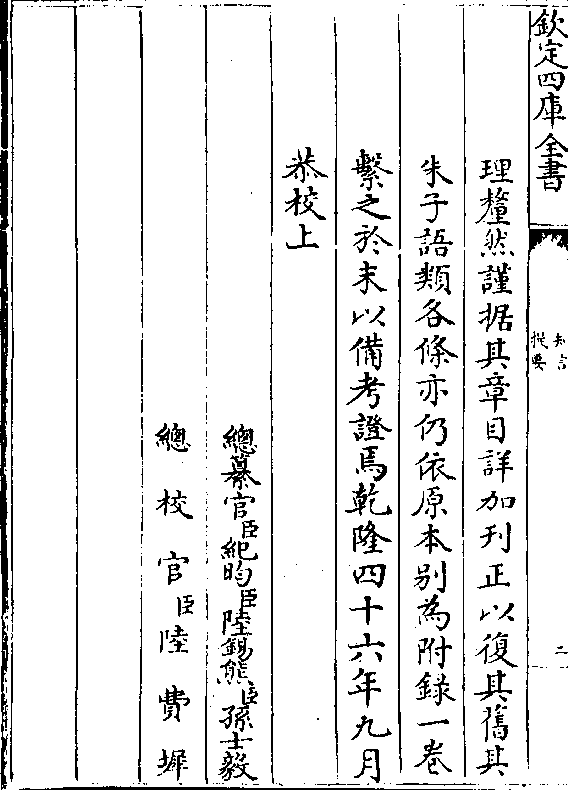 欽定四庫全書
知言
提要
二
理釐然謹据其章目詳加刋正以復其舊其
朱子語類各條亦仍依原本别為附錄一卷
繫之於末以備考證焉乾隆四十六年九月
恭校上
總纂官臣紀昀臣陸錫熊臣孫士毅
總校官臣陸費墀